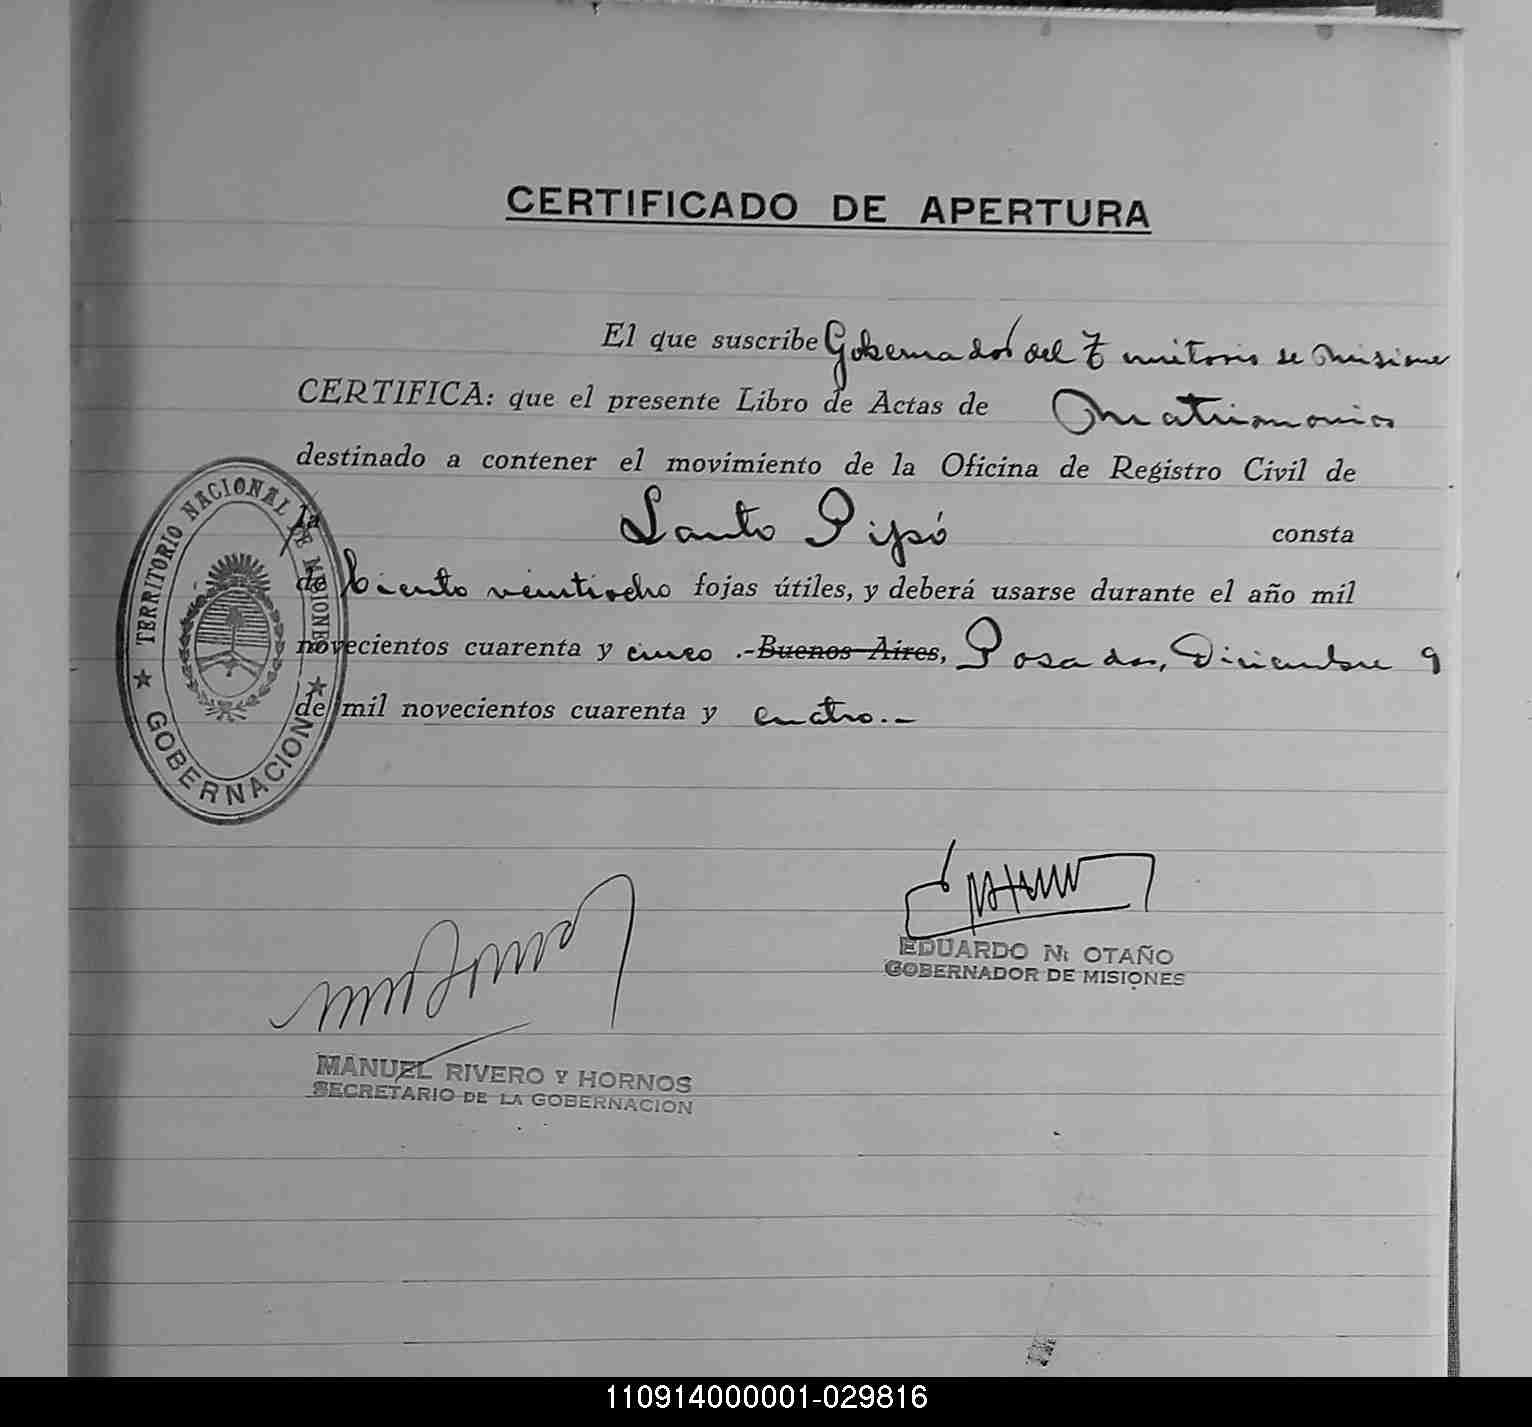 CERTIFICADO DE APERTURA
El que suscribe Gobernador del Territorio de Misiones
CERTIFICA: que el presente Libro de Actas de Matrimonios
destinado a contener el movimiento de la Oficina de Registro Civil de
la Santo Pipó consta
de Ciento veintiocho fojas útiles, y deberá usarse durante el año mil
novecientos cuarenta y cinco .-Buenos Aires, Posadas, Diciembre 9
de mil novecientos cuarenta y cuatro.-
TERRITORIO NACIONAL DE MISIONES
GOBERNACION
EDUARDO N. OTAÑO
GOBERNADOR DE MISIONES
MANUEL RIVERO Y HORNOS
SECRETARIO DE LA GOBERNACION
110914000001-029816